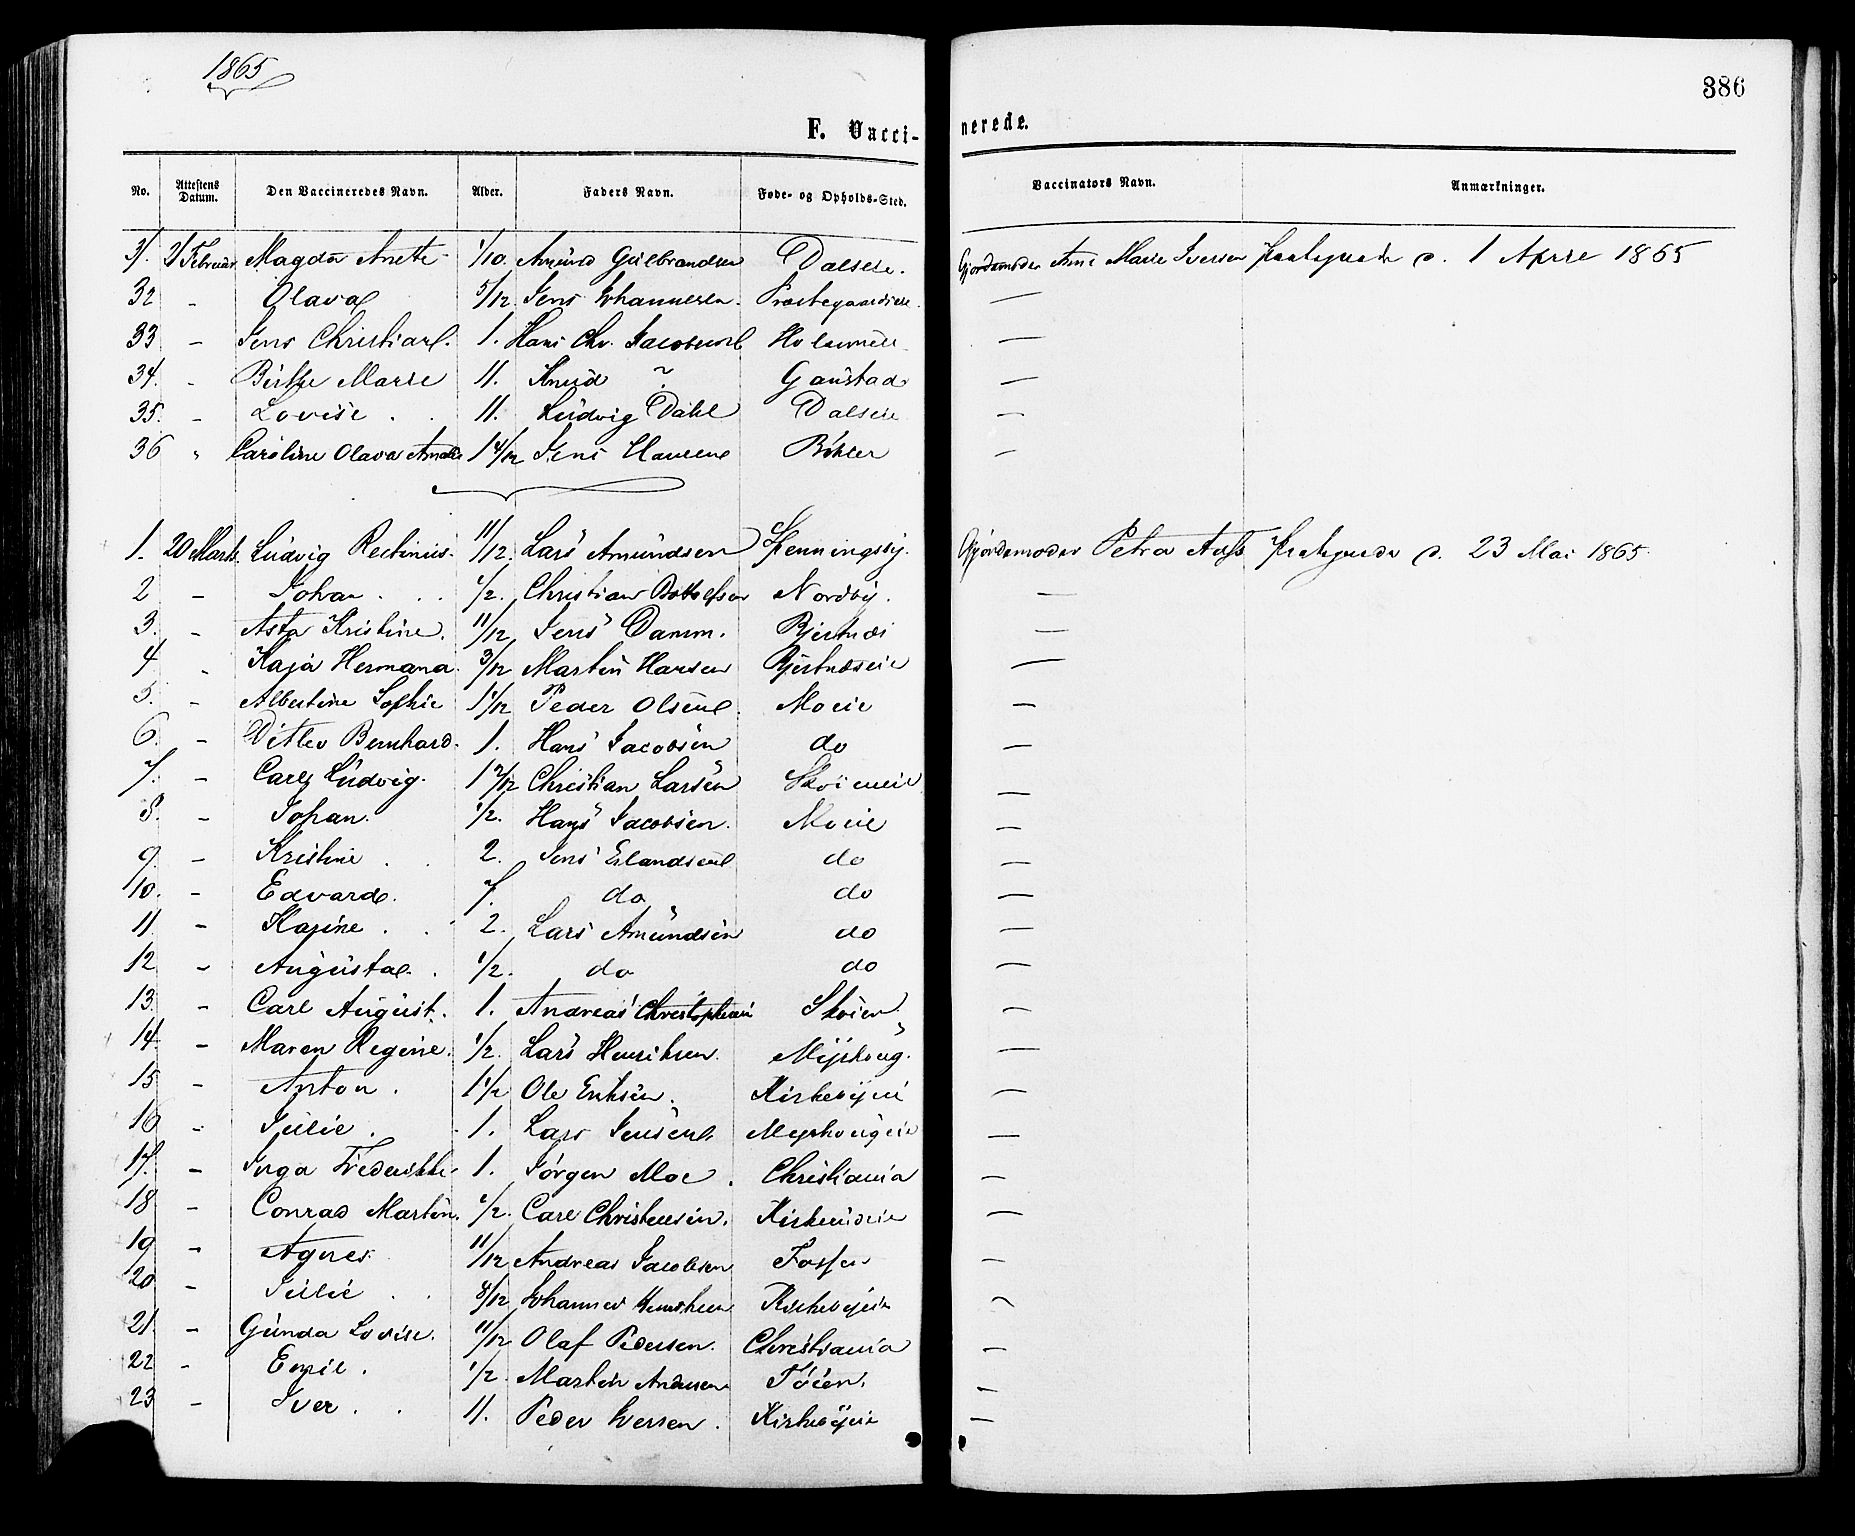 1865
386
F. Vaccinerede.
No. Attestens Datum. Den Vaccineredes Navn. Alder. Faders Navn. Føde- og Opholds-Sted. Vaccinators Navn. Anmærkninger.
31. 21 Februar Magda Anette 1/10 Amund Gulbrandsen Dalseie. Gjordemoder Anne Marie Iversen d. 1 April 1865
32 - Olava 5/12 Jens Johannesen. Præstegaardseie. —
33 - Jens Christian. 1. Hans Chr. Jacobsen —
34. - Birthe Marie 11. Knud ? Gaustad —
35. - Lovise . . 11. Ludvig Dahl Dalseie —
36 " Caroline Olava Amalie 1 4/12 Jens Hansen Bøhler —
1. 20 Marts. Ludvig Rectinius. 11/12. Lars Amundsen Spenningsby. Gjordemoder Petra d. 23 Mai 1865.
2 - Johan . . . 1/2. Christian Nordby. —
3. - Asta Kristine. 11/12 Jens Damm. Bjertnæs —
4 - Kaja Hermana. 3/12 Martin Hansen Bjertnæseie —
5. - Albertine Sophie 1 1/12 Peder Olsen. Moeie —
6. - Ditlev Bernhard. 1. Hans Jacobsen do —
7. - Carl Ludvig. 1 2/12 Christian Larsen Skøieneie —
8. - Johan. 1/2. Hans Jacobsen. Moeie —
9. - Kristine . . 2. Jens Erlandsen do —
10. - Edvard. 7. do do —
11 - Kajine . . 2. Lars Amundsen do —
12 - Augusta. . 1/2. do do —
13. - Carl August. 1. Andreas Christophersen Skøien —
14. - Maren Regine. 1/2. Lars Henriksen. Myrhoug. —
15 - Anton . 1 1/2 Ole Eriksen. Kirkebyeie —
16 - Julie . . 1. Lars Jensen. Myrhougeie —
17. - Inga Frederikke 1. Jørgen Moe . Christiania —
18 - Conrad Martin. 1/2. Carl Christensen. Kirkebyeie —
19 - Agnes. 11/12 Andreas Jacobsen —
20 - Julie . . 8/12 Johannes Henriksen Kirkebyeie —
21. - Gunda Lovise. 11/12 Olaf Pedersen. Christiania —
22 - Emil . 1/2. Martin Andersen Tøien. —
23 - Iver . . 11. Peder Iversen . Kirkebyeie —